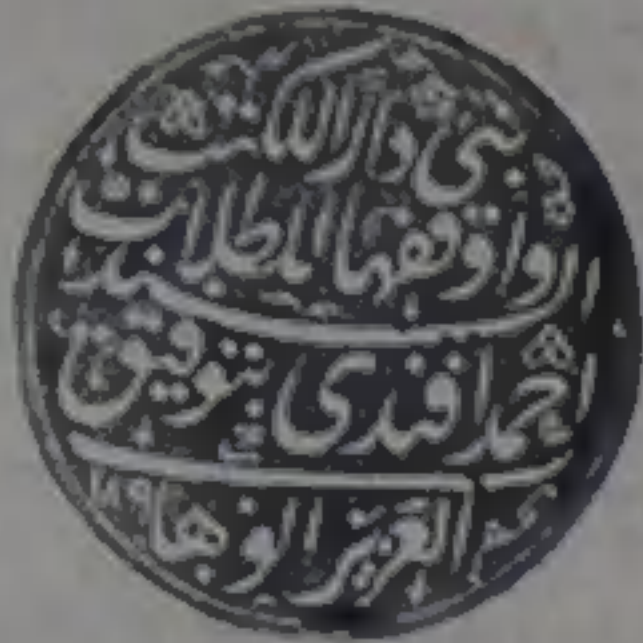 بنى دار الكتب
واوقفها للطلاب
السيد
احمد افندى بتوفيق
العزيز الوهاب